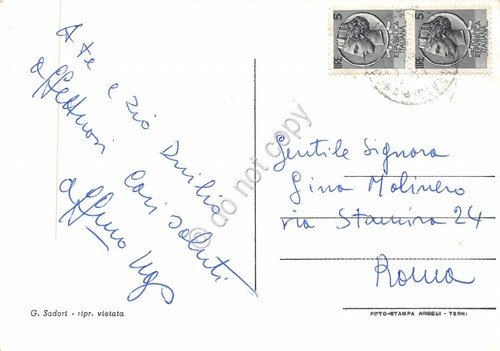 A te e zio Duilio
affettuosi cari saluti
aff.mo Ugo
Gentile Signora
Gina Molinero
via Stamira 24
Roma
5
5
G. Sadori - ripr. vietata
FOTO-STAMPA ANGELI - TERNI
© do not copy